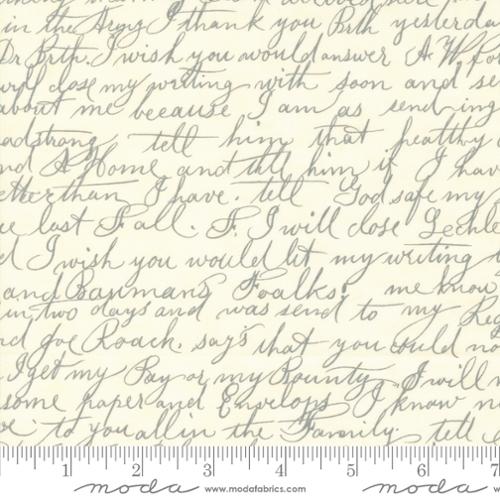 in the Army I thank you Brth yesterda
Dr Brth. I wish you would answer A. W. Fo
will close my writing with soon and se
about me because I am as sending
adstrong tell him that healthy
nd A Home and till him if I have
etter than I have. tell God safe my
ce last Fall. F. I will close Lechle
d I wish you would let my writing
and Baumans Foalks, me know
in two days and was send to my Reg
nd Joe Roach. says that you could no
I get my Pay or my Bounty I will
some paper and Envelops I know n
to you all in the Family tell
1 2 3 4 5 6 7
moda www.modafabrics.com moda www.modafabrics.com moda